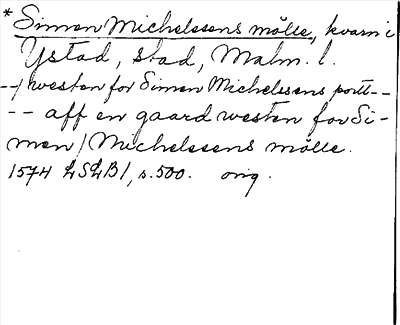 * Simon Michelssens mölle, kvarn i
Ystad, stad, Malm. l.
--/ westen for Simon Michelssens portt--
-- aff en gaard westen for Si-
mon/Michelssens mölle.
1574 LSLB1, s. 500. orig.